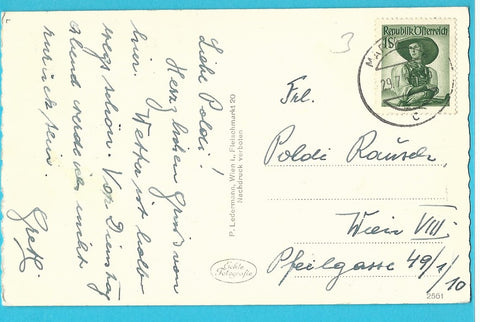 Liebe Poldi!
Herzlichen Gruß von
hier. Wetter ist halb-
wegs schön. Vor Dienstag
Abend werde ich nicht
zurück sein.
Gretl.
P. Ledermann, Wien I., Fleischmarkt 20
Nachdruck verboten
Echte
Fotografie
3
Republik Österreich
1S
MA
29.
C
Frl.
Poldi Rausch,
Wien VIII.
Pfeilgasse 49/1/10
2551